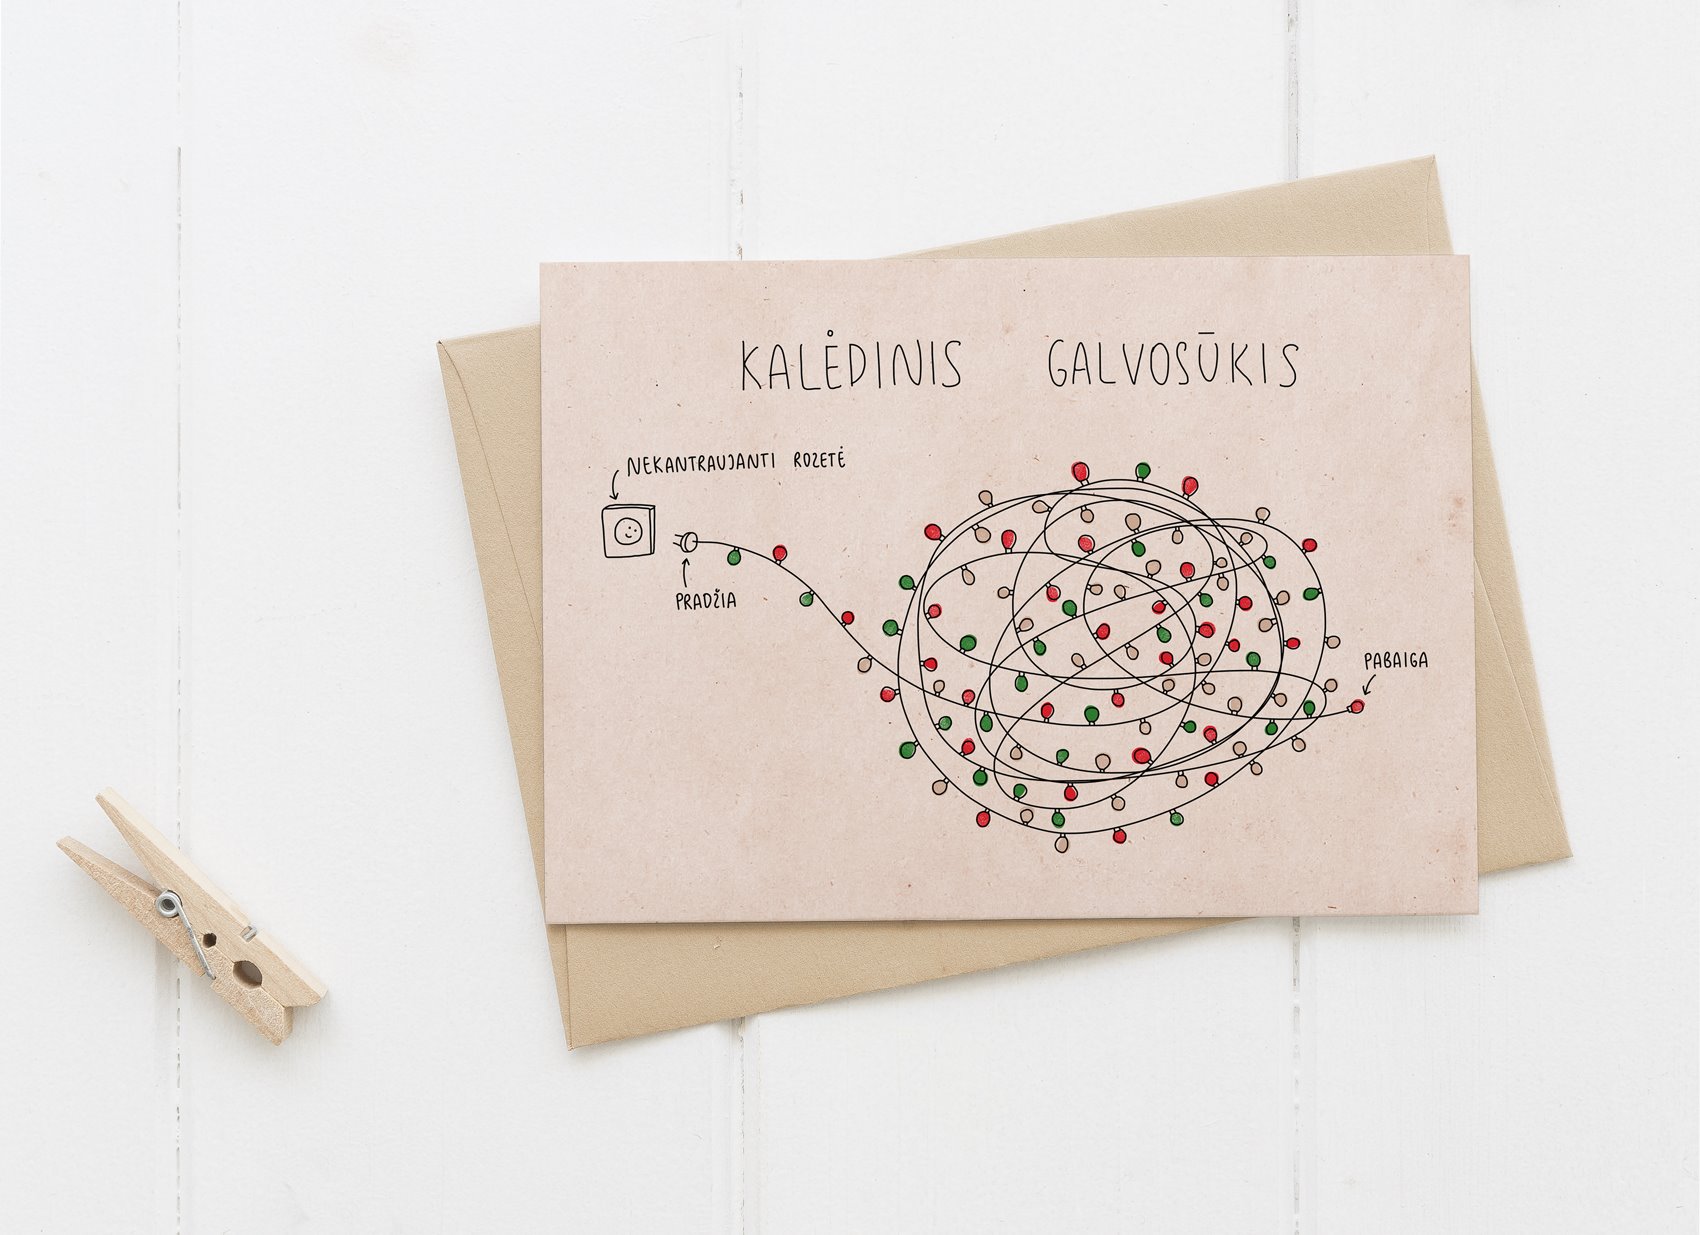 KALĖDINIS GALVOSŪKIS
NEKANTRAUJANTI ROZETĖ
PRADŽIA
PABAIGA